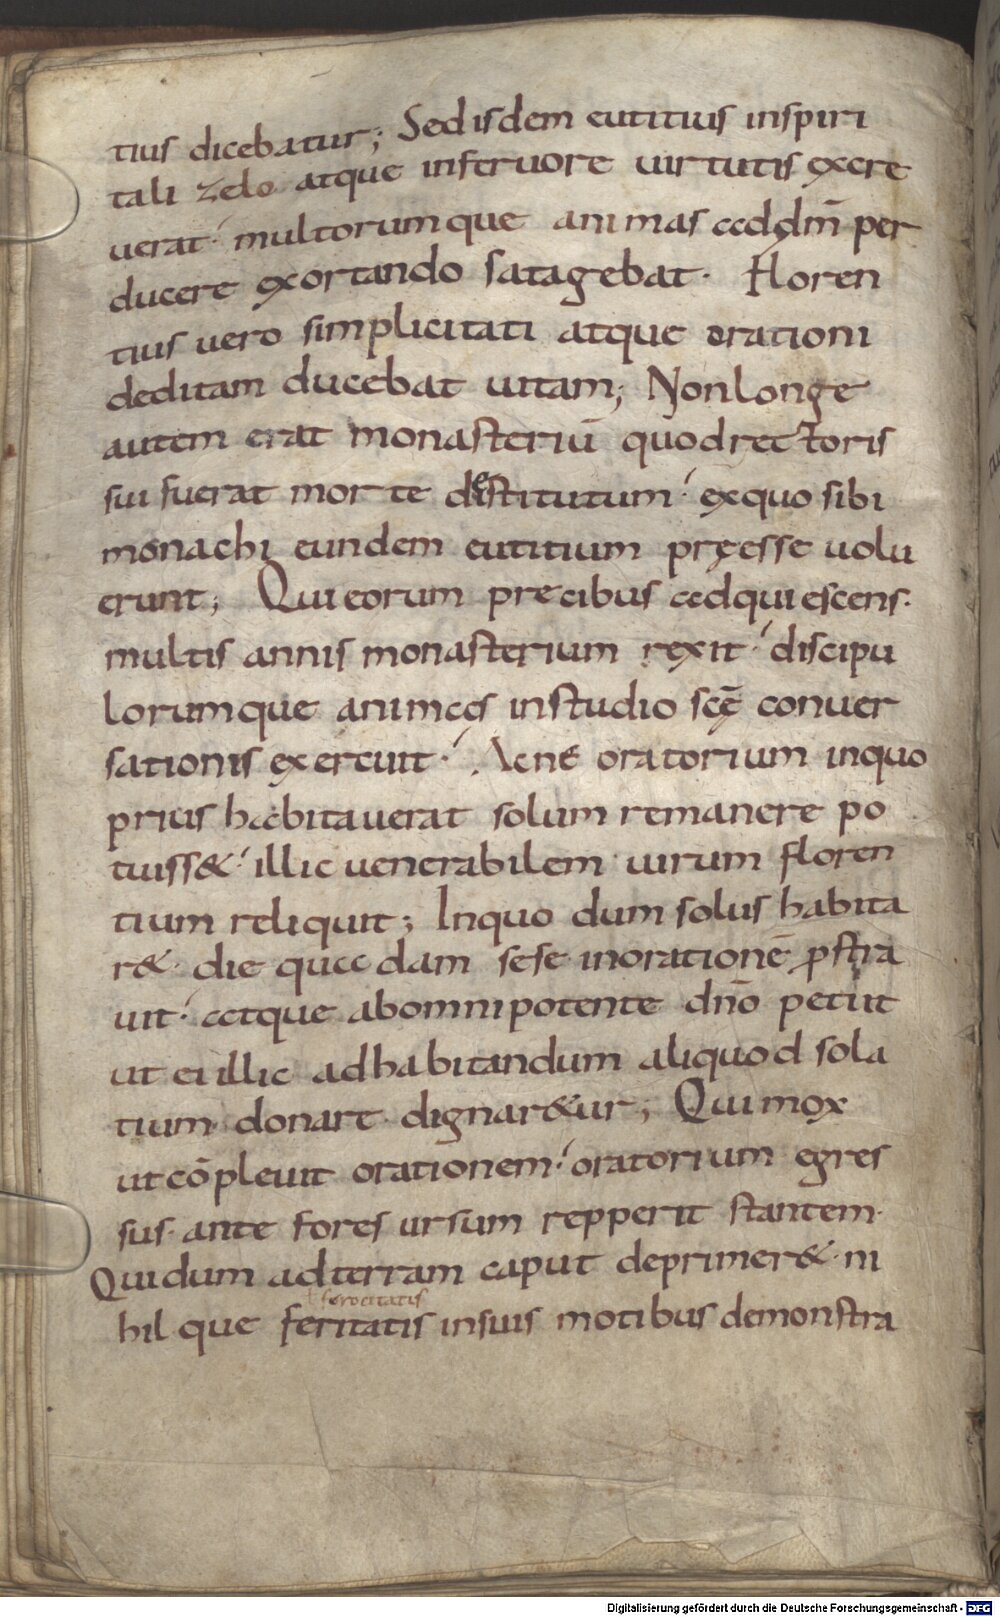 tius dicebatur; Sed isdem eutitius inspiri
tali zelo atque inferuore uirtutis excre
uerat· multorumque animas addm̄ per
ducere exortando satagebat· Floren
tius uero simplicitati atque orationi
deditam ducebat uitam; Nonlonge
autem erat monasteriū quodrectoris
sui fuerat morte destitutum· exquo sibi
monachi eundem eutitium pręesse uolu
erunt; Qui eorum precibus adquiescens·
multis annis monasterium rexit· discipu
lorumque animas instudio scę̄ conuer
sationis exercuit· Acne oratorium inquo
prius habitauerat solum remanere po
tuiss&· illic uenerabilem uirum floren
tium reliquit; Inquo dum solus habita
r&· die quadam sese inorationē ꝓstra
uit· atque abomnipotente dn̄o petiit
ut ei illic adhabitandum aliquod sola
tium donare dignar&ur; Qui mox
utcōpleuit orationem· oratorium egres
sus· ante fores ursum repperit stantem·
Quidum adterram caput deprimer&· ni
ferocitatis
hil que feritatis insuis motibus demonstra
Digitalisierung gefördert durch die Deutsche Forschungsgemeinschaft - DFG